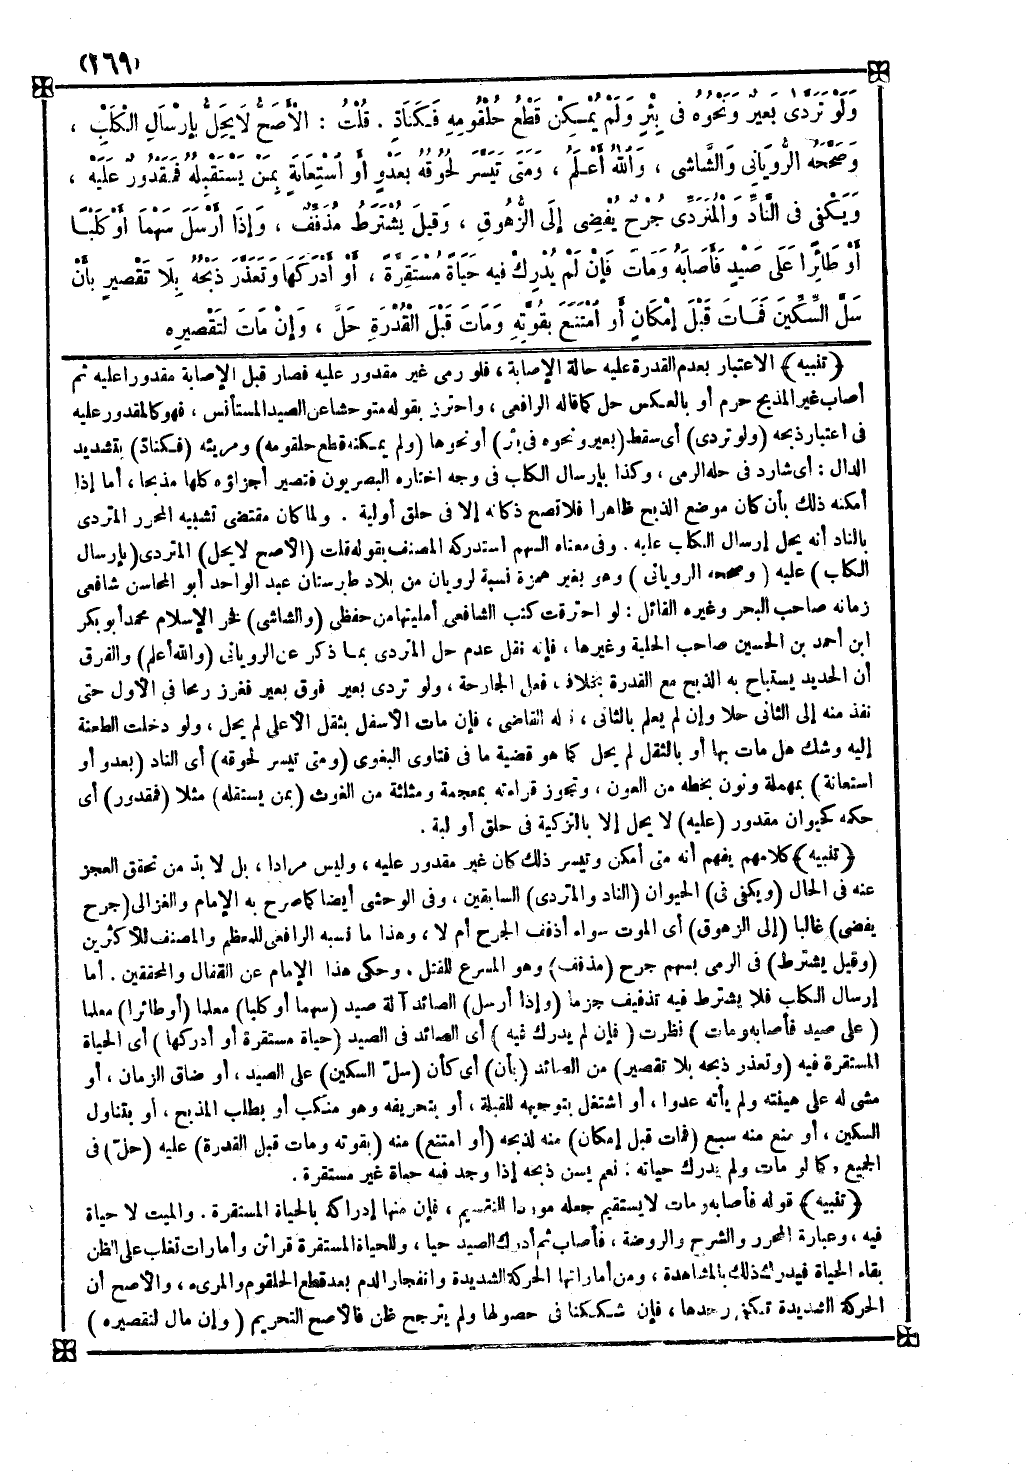 (٢٦٩)
وَلَوْ تَرَدَّى بَعِيرٌ وَنَحْوُهُ فِى بِئْرٍ وَلَمْ يُمْكِنْ قَطْعُ حُلْقُومِهِ فَكَنَادٍّ . قُلْتُ : الْأَصَحُّ لَا يَحِلُّ بِإِرْسَالِ الْكَلْبِ ،
وَصَحَّحَهُ الرُّويَانِى وَالشَّاشِى ، وَاللهُ أَعْلَمُ ، وَمَتَى تَيَسَّرَ لُحُوقُهُ بِعَدْوٍ أَوِ اسْتِعَانَةٍ بِمَنْ يَسْتَقْبِلُهُ فَمَقْدُورٌ عَلَيْهِ ،
وَيَكْفِى فِى النَّادِّ وَالْمُتَرَدِّى جُرْحٌ يُفْضِى إِلَى الزُّهُوقِ ، وَقِيلَ يُشْتَرَطُ مُذَفِّفٌ ، وَإِذَا أَرْسَلَ سَهْمًا أَوْ كَلْبًا
أَوْ طَائِرًا عَلَى صَيْدٍ فَأَصَابَهُ وَمَاتَ فَإِنْ لَمْ يُدْرِكْ فِيهِ حَيَاةً مُسْتَقِرَّةً ، أَوْ أَدْرَكَهَا وَتَعَذَّرَ ذَبْحُهُ بِلَا تَقْصِيرٍ بِأَنْ
سَلَّ السِّكِّينَ فَمَاتَ قَبْلَ إِمْكَانٍ أَوِ امْتَنَعَ بِقُوَّتِهِ وَمَاتَ قَبْلَ الْقُدْرَةِ حَلَّ ، وَإِنْ مَاتَ لِتَقْصِيرِهِ
﴿ تنبيه ﴾ الاعتبار بعدم القدرة عليه حالة الإصابة ، فلو رمى غير مقدور عليه فصار قبل الإصابة مقدورا عليه ثم
أصاب غير المذبح حرم أو بالعكس حل كما قاله الرافعى ، واحترز بقوله متوحشا عن الصيد المستأنس ، فهو كالمقدور عليه
فى اعتبار ذبحه (ولو تردى) أى سقط (بعير ونحوه فى بئر) أو نحوها (ولم يمكنه قطع حلقومه) ومريئه (فكنادّ) بتشديد
الدال : أى شارد فى حله الرمى ، وكذا بإرسال الكلب فى وجه اختاره البصريون فتصير أجزاؤه كلها مذبحا ، أما إذا
أمكنه ذلك بأن كان موضع الذبح ظاهرا فلا تصح ذكاته إلا فى حلق أو لبة . ولما كان مقتضى تشبيه المحرر المتردى
بالناد أنه يحل إرسال الكلب عليه . وفى معناه السهم استدركه المصنف بقوله قلت (الأصح لايحل) المتردى (بإرسال
الكلب) عليه ( وصححه الرويانى ) وهو بغير همزة نسبة لرويان من بلاد طبرستان عبد الواحد أبو المحاسن شافعى
زمانه صاحب البحر وغيره القائل : لو احترقت كتب الشافعى أمليتها من حفظى (والشاشى) فخر الإسلام محمد أبو بكر
ابن أحمد بن الحسين صاحب الحلية وغيرها ، فإنه نقل عدم حل المتردى بما ذكر عن الرويانى (والله أعلم) والفرق
أن الحديد يستباح به الذبح مع القدرة بخلاف فعل الجارحة ، ولو تردى بعير فوق بعير فغرز رمحا فى الأول حتى
نفذ منه إلى الثانى حلا وإن لم يعلم بالثانى ، قاله القاضى ، فإن مات الأسفل بثقل الأعلى لم يحل ، ولو دخلت الطعنة
إليه وشك هل مات بها أو بالثقل لم يحل كما هو قضية ما فى فتاوى البغوى (ومتى تيسر لحوقه) أى الناد (بعدو أو
استعانة) بمهملة ونون بخطه من العون ، وتجوز قراءته بمعجمة ومثلثة من الغوث (بمن يستقله) مثلا (فمقدور) أى
حكمه كحيوان مقدور (عليه) لا يحل إلا بالتزكية فى حلق أو لبة .
﴿ تنبيه ﴾ كلامهم يفهم أنه متى أمكن وتيسر ذلك كان غير مقدور عليه ، وليس مرادا ، بل لا بدّ من تحقق العجز
عنه فى الحال (ويكفى فى) الحيوان (الناد والمتردى) السابقين ، وفى الوحشى أيضا كما صرح به الإمام والغزالى (جرح
يفضى) غالبا (إلى الزهوق) أى الموت سواء أذفف الجرح أم لا ، وهذا ما نسبه الرافعى للمعظم والمصنف للأكثرين
(وقيل يشترط) فى الرمى بسهم جرح (مذفف) وهو المسرع للقتل ، وحكى هذا الإمام عن القفال والمحققين . أما
إرسال الكلب فلا يشترط فيه تذفيف جزما (وإذا أرسل) الصائد آلة صيد (سهما أو كلبا) معلما (أو طائرا) معلما
( على صيد فأصابه ومات ) نظرت ( فإن لم يدرك فيه ) أى الصائد فى الصيد (حياة مستقرة أو أدركها ) أى الحياة
المستقرة فيه (وتعذر ذبحه بلا تقصير) من الصائد (بأن) أى كأن (سلّ السكين) على الصيد ، أو ضاق الزمان ، أو
مشى له على هيئته ولم يأته عدوا ، أو اشتغل بتوجيهه للقبلة ، أو بتحريفه وهو منكب أو بطلب المذبح ، أو بتناول
السكين ، أو منع منه سبع (فمات قبل إمكان) منه لذبحه (أو امتنع) منه (بقوته ومات قبل القدرة) عليه (حلّ) فى
الجميع ، كما لو مات ولم يدرك حياته : نعم يسن ذبحه إذا وجد فيه حياة غير مستقرة .
﴿ تنبيه ﴾ قوله فأصابه ومات لا يستقيم جعله موردا للتقسيم ، فإن منها إدراكه بالحياة المستقرة . والميت لا حياة
فيه ، وعبارة المحرر والشرح والروضة ، فأصاب ثم أدرك الصيد حيا ، وللحياة المستقرة قرائن وأمارات تغلب على الظن
بقاء الحياة فيدرك ذلك بالمشاهدة ، ومن أماراتها الحركة الشديدة وانفجار الدم بعد قطع الحلقوم والمرىء ، والأصح أن
الحركة الشديدة تكفى وحدها ، فإن شككنا فى حصولها ولم يترجح ظن فالأصح التحريم ( وإن مال لتقصيره )